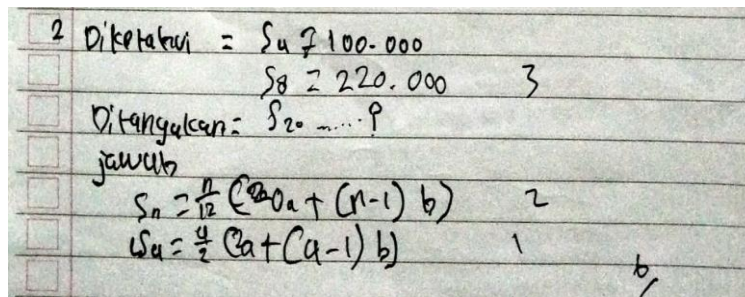 2 Diketahui = S4 = 100.000
S8 = 220.000 3
Ditanyakan = S20 ......?
jawab
Sn = n/2 (2a + (n-1) b) 2
S4 = 4/2 (2a + (4-1) b) 1
6/